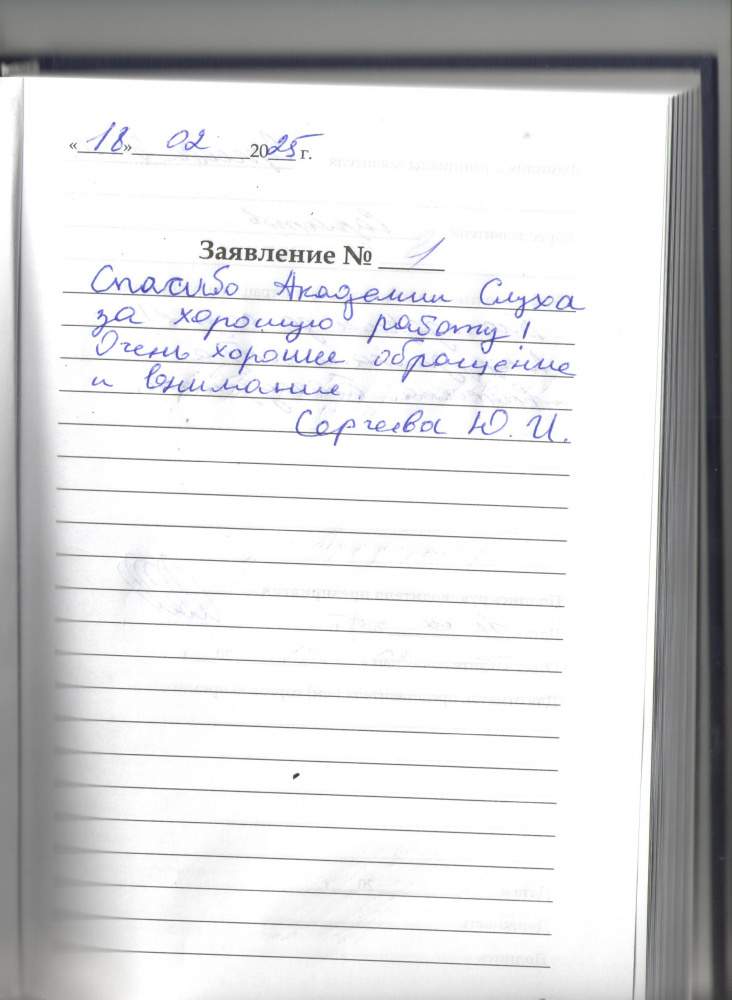 «18» 02 2025 г.
Заявление № 1
Спасибо Академии Слуха
за хорошую работу!
Очень хорошее обращение
и внимание.
Сергеева Ю. И.